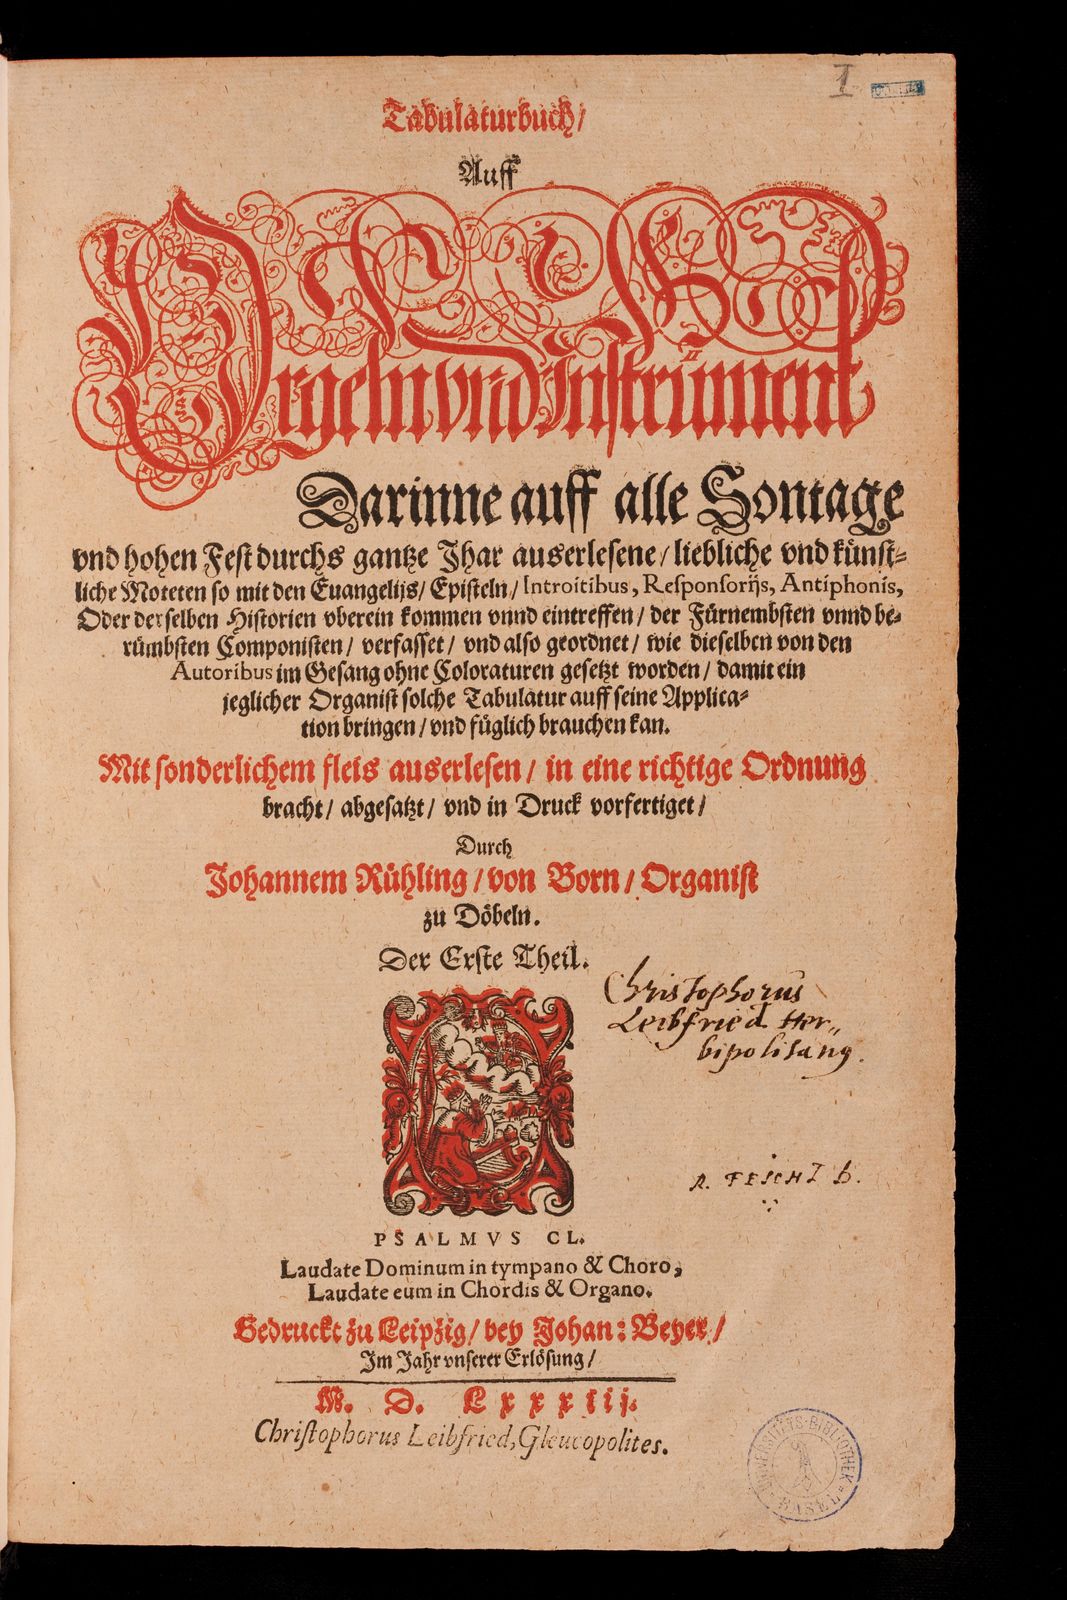 I
Tabulaturbuch/
Auff
Orgeln vnd Instrument
Darinne auff alle Sontage
vnd hohen Fest durchs gantze Jhar auserlesene/ liebliche vnd künst-
liche Moteten so mit den Euangelijs/ Episteln/ Introitibus, Responsorijs, Antiphonis,
Oder derselben Historien vberein kommen vnnd eintreffen/ der Fürnembsten vnnd be-
rümbsten Componisten/ verfasset/ vnd also geordnet/ wie dieselben von den
Autoribus im Gesang ohne Coloraturen gesetzt worden/ damit ein
jeglicher Organist solche Tabulatur auff seine Applica-
tion bringen/ vnd füglich brauchen kan.
Mit sonderlichem fleis auserlesen/ in eine richtige Ordnung
bracht/ abgesatzt/ vnd in Druck vorfertiget/
Durch
Johannem Rühling/ von Born/ Organist
zu Döbeln.
Der Erste Theil.
Christophorus
Leibfried Her„
bipolitang.
R. FESCHI B.
PSALMVS CL.
Laudate Dominum in tympano & Choro,
Laudate eum in Chordis & Organo.
Gedruckt zu Leipzig/ bey Johan: Beyer/
Im Jahr vnserer Erlösung/
M. D. Lxxxiij.
Christophorus Leibfried, Gleucopolites.
UNIVERSITÄTS-BIBLIOTHEK BASEL